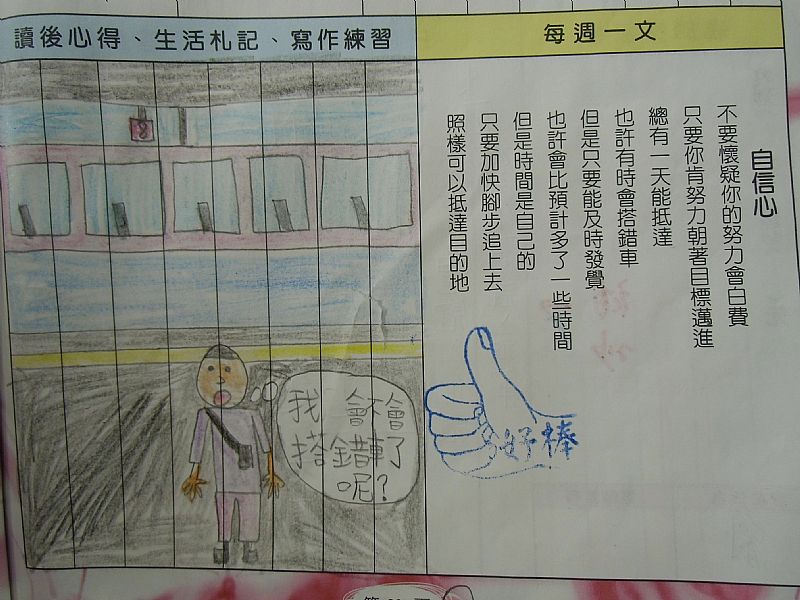 讀後心得、生活札記、寫作練習
每週一文
自信心
不要懷疑你的努力會白費
只要你肯努力朝著目標邁進
總有一天能抵達
也許有時會搭錯車
但是只要能及時發覺
也許會比預計多了一些時間
但是時間是自己的
只要加快腳步追上去
照樣可以抵達目的地
8
我會不會
搭錯車了
呢?
好棒